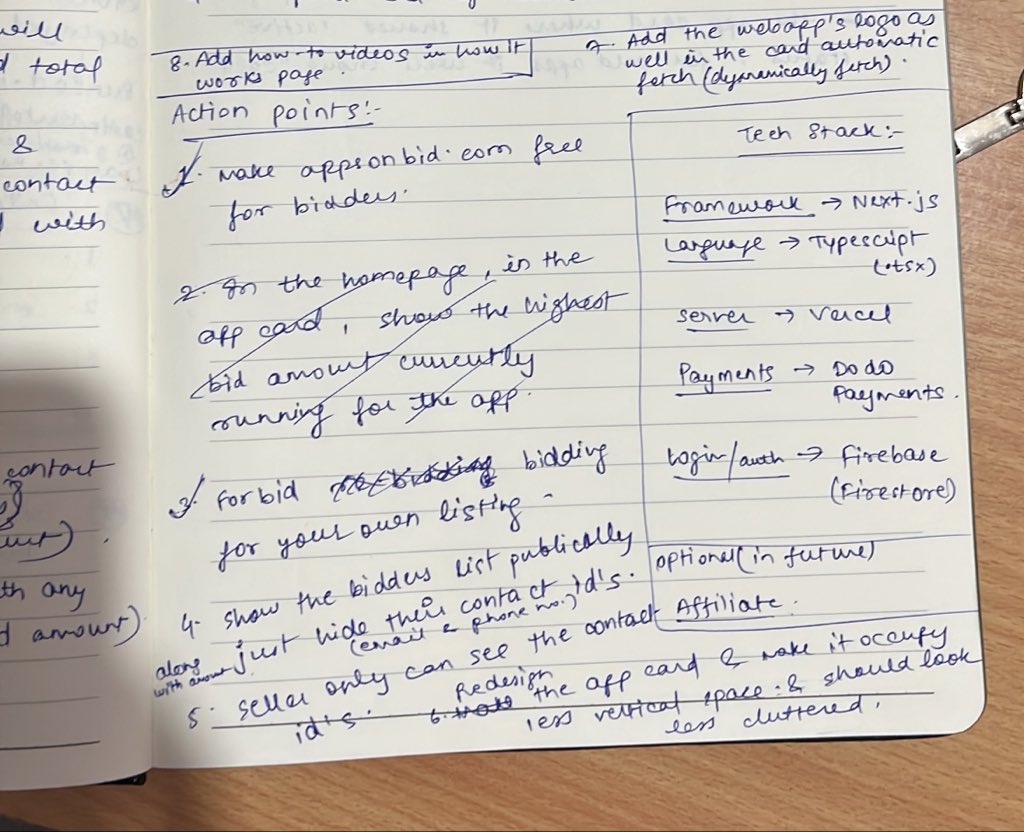 will
total
&
contact
with
contact
th any
d amount).
8. Add how-to videos in how it
works page.
7. Add the webapp's logo as
well in the card automatic
fetch (dynamically fetch).
Action points:-
1. Make appsonbid.com free
for bidders.
2. In the homepage, in the
app card, show the highest
bid amount currently
running for the app.
3. Forbid bidding
for your own listing -
4. Show the bidders list publically
along with amount just hide their contact id's.
(email & phone no.)
5. Seller only can see the contact
id's.
6. Redesign the app card & make it occupy
less vertical space. & should look
less cluttered.
Tech Stack:-
Framework → Next.js
Language → Typescript
(.tsx)
Server → Vercel
Payments → Dodo
Payments.
Login/auth → Firebase
(Firestore)
Optional (in future)
Affiliate.